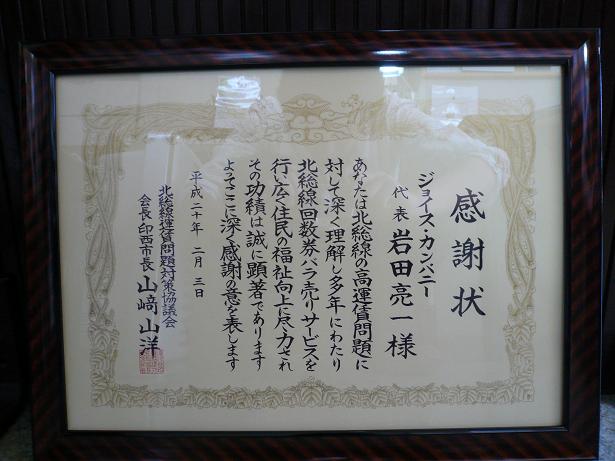 感謝状
ジョイス・カンパニー
代表 岩田亮一様
あなたは北総線の高運賃問題に
対して深く理解し多年にわたり
北総線回数券バラ売りサービスを
行い広く住民の福祉向上に尽力され
その功績は誠に顕著であります
よってここに深く感謝の意を表します
平成二十年 二月 三日
北総線運賃問題対策協議会
会長 印西市長 山﨑山洋